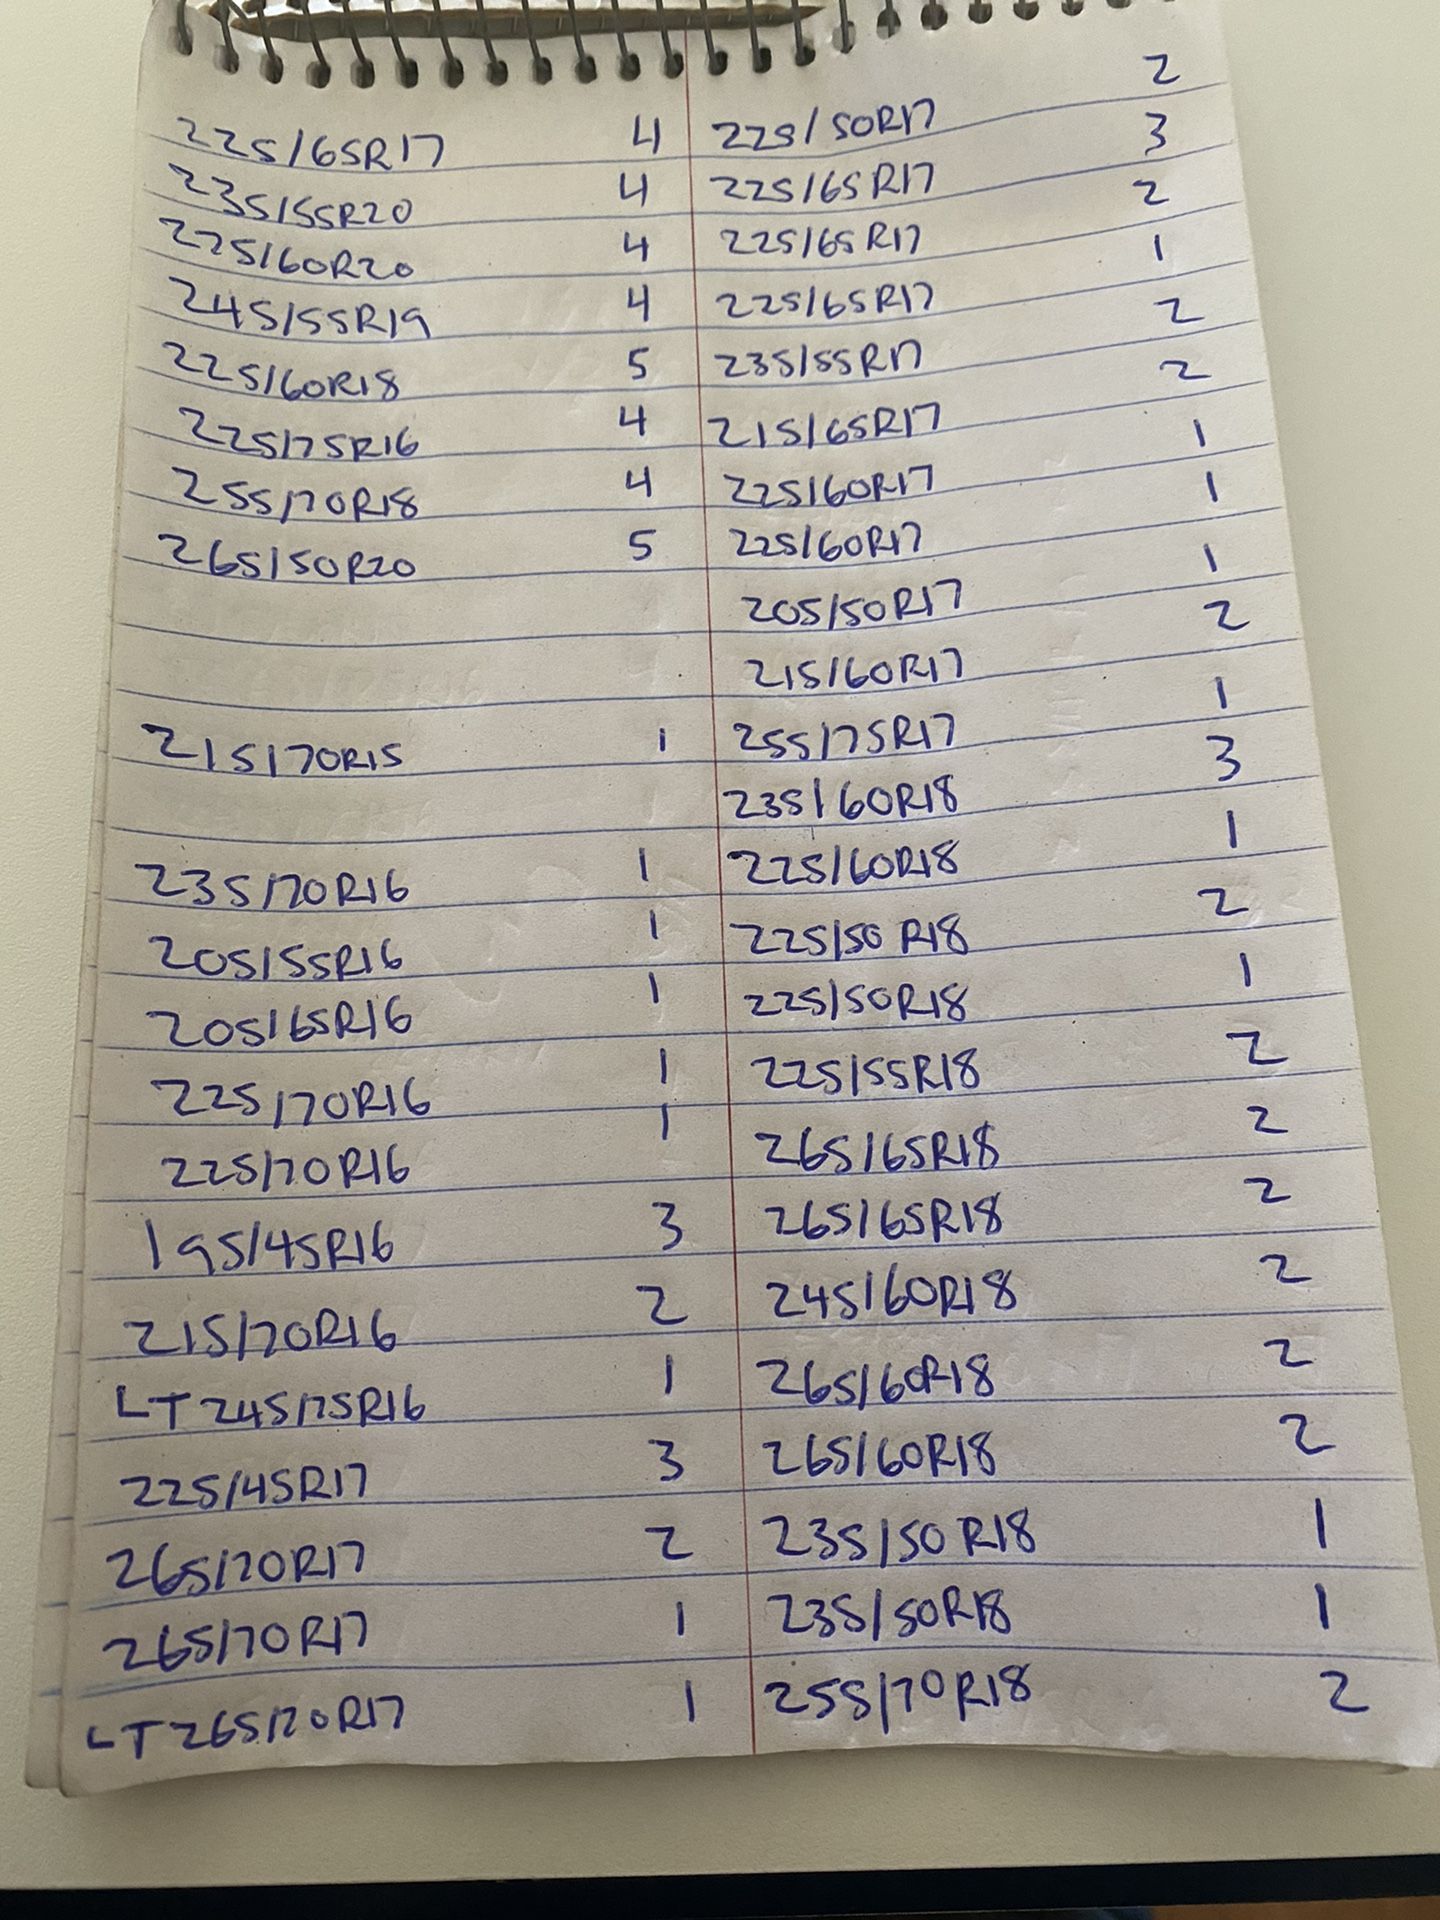 225/65R17 4
235/55R20 4
225/60R20 4
245/55R19 4
225/60R18 5
225/75R16 4
255/70R18 4
265/50R20 5
215/70R15 1
235/70R16 1
205/55R16 1
205/65R16 1
225/70R16 1
225/70R16 1
195/45R16 3
215/70R16 2
LT245/75R16 1
225/45R17 3
265/70R17 2
265/70R17 1
LT265/70R17 1
225/50R17 2
225/65R17 3
225/65R17 2
225/65R17 1
235/55R17 2
215/65R17 2
225/60R17 1
225/60R17 1
205/50R17 1
215/60R17 2
255/75R17 1
235/60R18 3
225/60R18 1
225/50R18 2
225/50R18 1
225/55R18 2
265/65R18 2
265/65R18 2
245/60R18 2
265/60R18 2
265/60R18 2
235/50R18 1
235/50R18 1
255/70R18 2